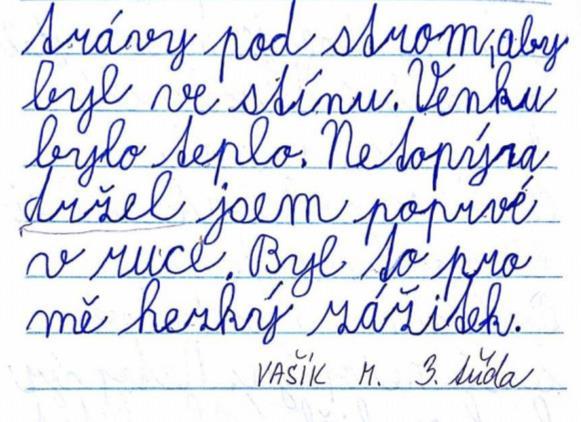 trávy pod strom, aby
byl ve stínu. Venku
bylo teplo. Netopýra
držel jsem poprvé
v ruce. Byl to pro
mě hezký zážitek.
VAŠÍK M. 3. třída